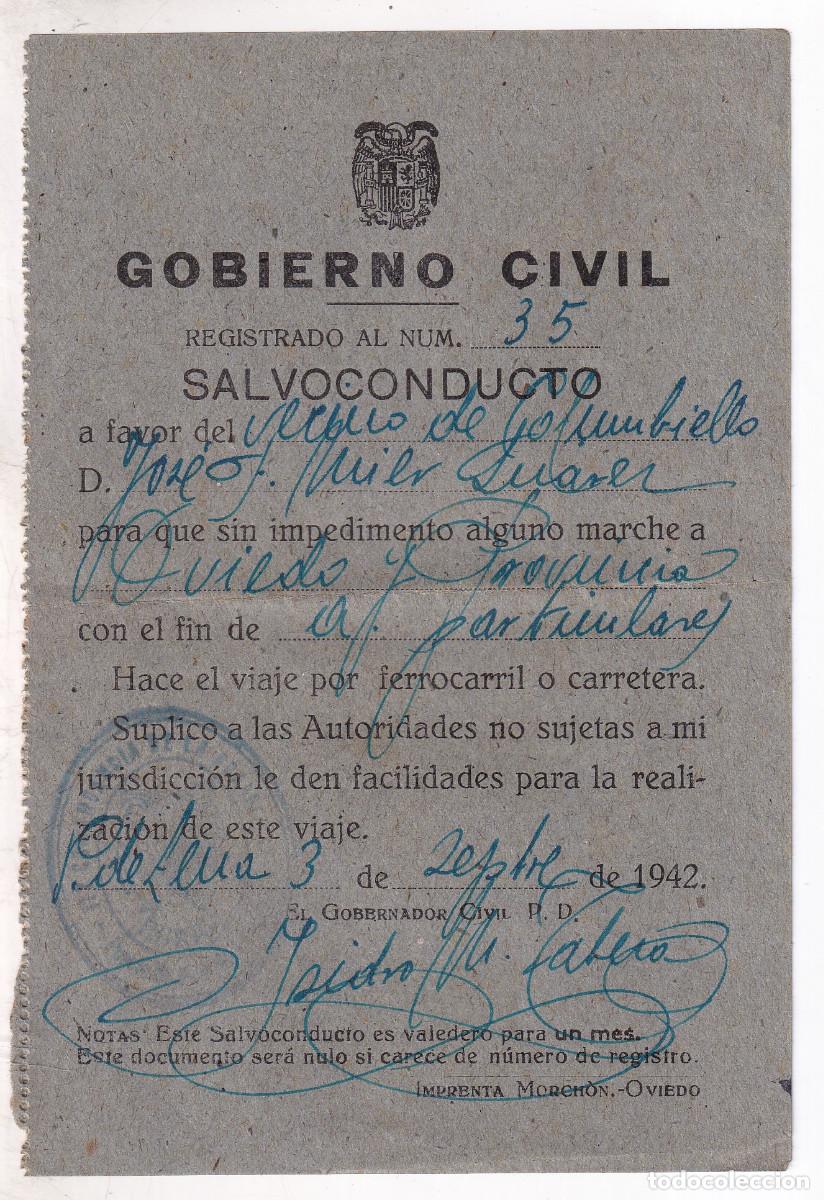 GOBIERNO CIVIL
REGISTRADO AL NUM. 35
SALVOCONDUCTO
a favor del vecino de Columbiello
D. José J. Miler Suárez
para que sin impedimento alguno marche a
Oviedo y Provincia
con el fin de a. particulares
Hace el viaje por ferrocarril o carretera.
Suplico a las Autoridades no sujetas a mi
jurisdicción le den facilidades para la reali-
zación de este viaje.
P. de Lena 3 de Sepbre de 1942.
EL GOBERNADOR CIVIL P. D.
Isidro M. Cabeza
NOTAS: Este Salvoconducto es valedero para un mes.
Este documento será nulo si carece de número de registro.
IMPRENTA MORCHÓN.-OVIEDO
todocoleccion